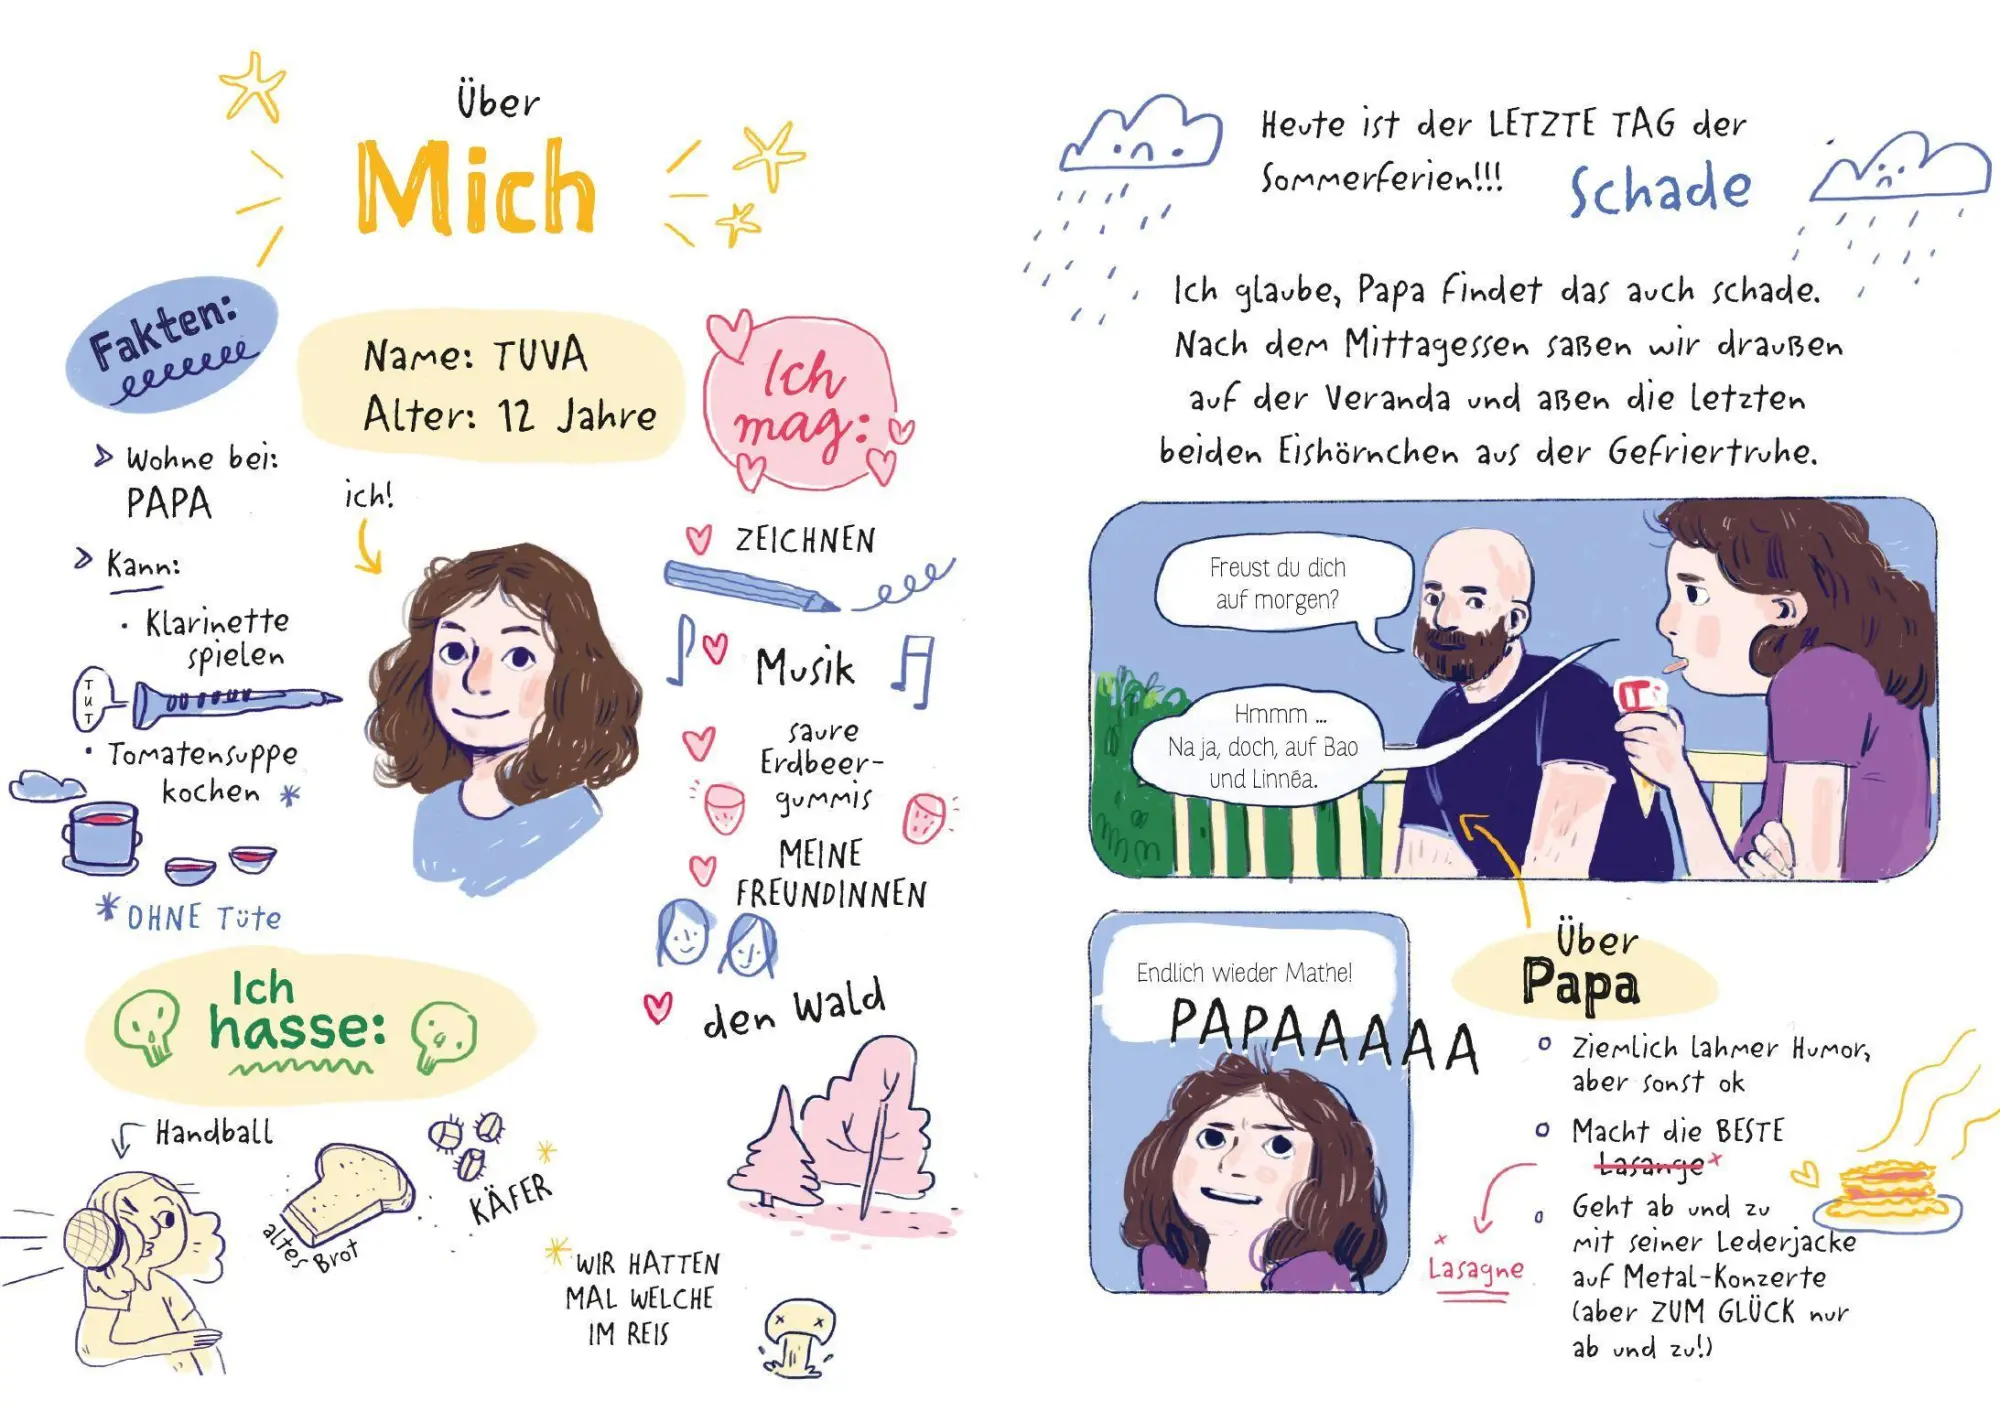 Über
Mich
Fakten:
Name: TUVA
Alter: 12 Jahre
Wohne bei:
PAPA
Kann:
• Klarinette
spielen
TUT
• Tomatensuppe
kochen *
*OHNE Tüte
ich!
Ich
mag:
ZEICHNEN
Musik
saure
Erdbeer-
gummis
MEINE
FREUNDINNEN
den Wald
Ich
hasse:
Handball
altes Brot
KÄFER *
*WIR HATTEN
MAL WELCHE
IM REIS
Heute ist der LETZTE TAG der
Sommerferien!!!
Schade
Ich glaube, Papa findet das auch schade.
Nach dem Mittagessen saßen wir draußen
auf der Veranda und aßen die letzten
beiden Eishörnchen aus der Gefriertruhe.
Freust du dich
auf morgen?
Hmmm ...
Na ja, doch, auf Bao
und Linnéa.
Endlich wieder Mathe!
PAPAAAAA
Über
Papa
Ziemlich lahmer Humor,
aber sonst ok
Macht die BESTE
Lasange x
x
Lasagne
Geht ab und zu
mit seiner Lederjacke
auf Metal-Konzerte
(aber ZUM GLÜCK nur
ab und zu!)